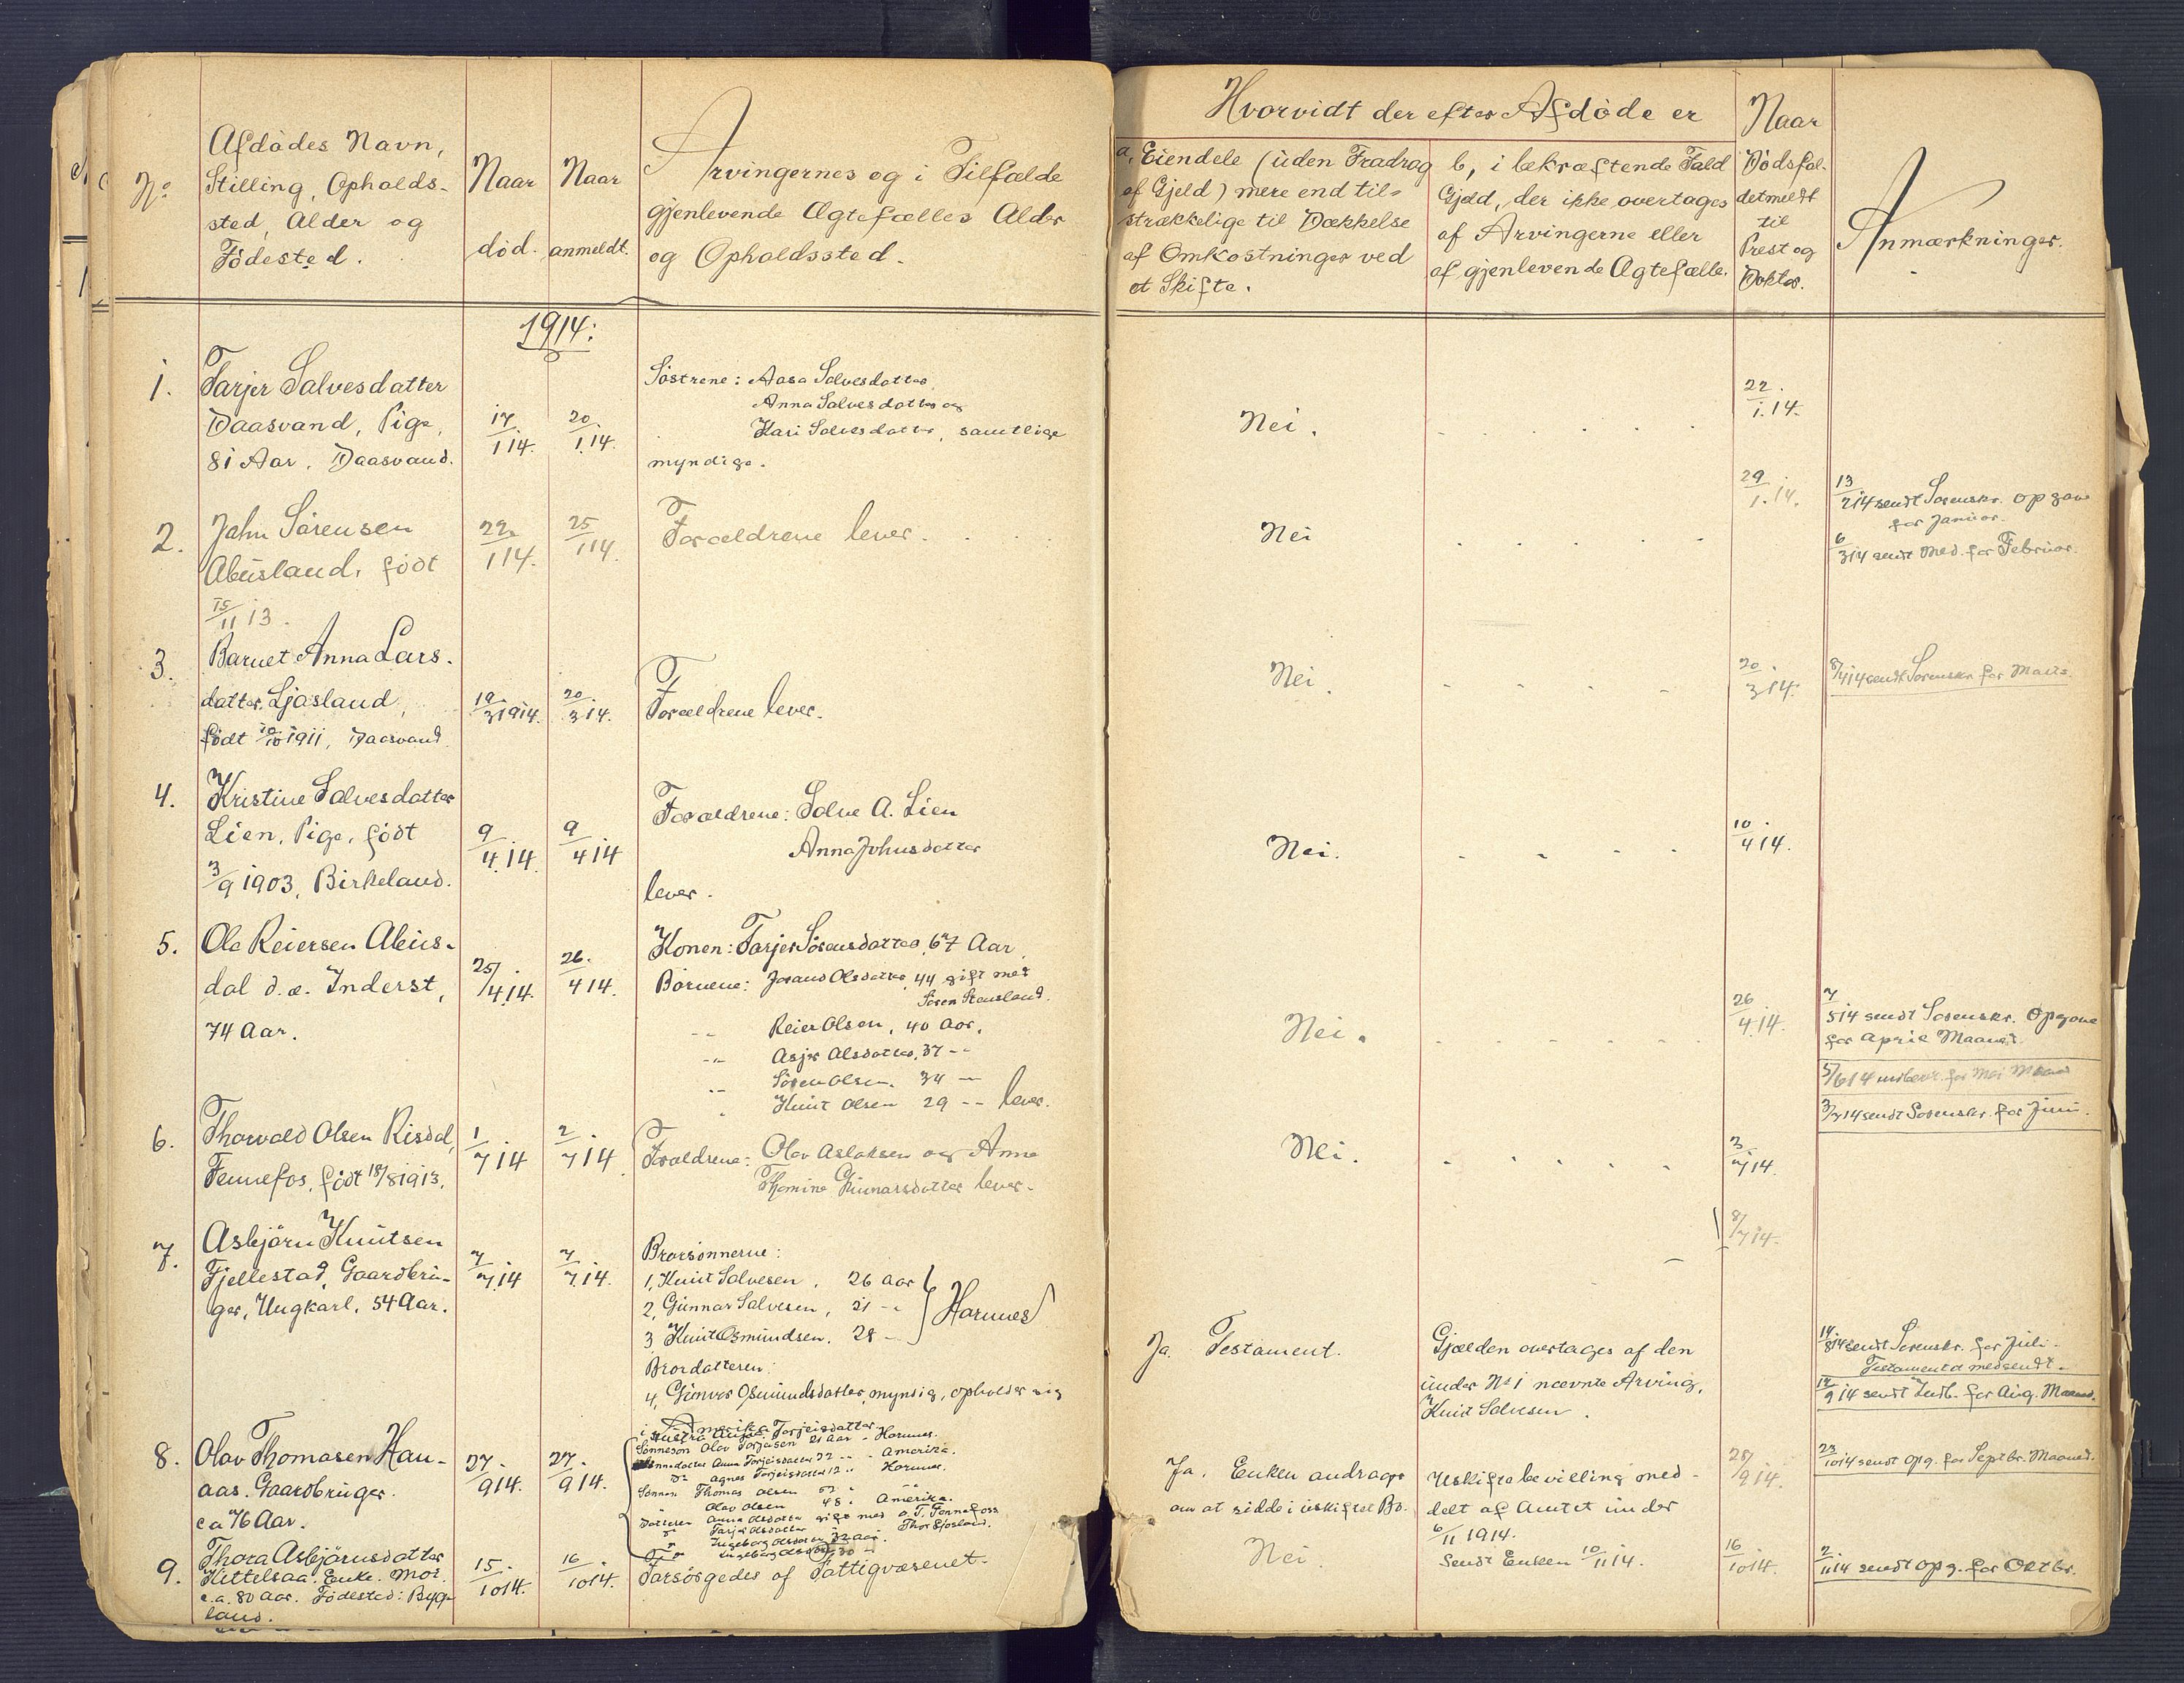 No
Afdødes Navn,
Stilling, Opholds-
sted, Alder og
Fødested.
Naar
død.
Naar
anmeldt.
Arvingernes og i Tilfælde
gjenlevende Ægtefælles Alder
og Opholdssted.
Hvorvidt der efter Afdøde er
a, Eiendele (uden Fradrag
af Gjeld) mere end til-
strækkelige til Dækkelse
af Omkostninger ved
et Skifte.
b, i bekræftende Fald
Gjeld, der ikke overtages
af Arvingerne eller
af gjenlevende Ægtefælle.
Naar
Dødsfal-
det meldt
til
Prest og
Doktor.
Anmærkninger.
1914:
1.
Tarjer Salvesdatter
Daasvand, Pige,
81 Aar. Daasvand.
17/1 14.
20/1 14.
Søstrene: Aasa Salvesdatter,
Anna Salvesdatter og
Kari Salvesdatter, samtlige
myndige.
Nei.
22/1. 14.
2.
Jahn Sørensen
Abusland, født
15/11 13.
22/1 14.
25/1 14.
Forældrene lever.
Nei
29/1. 14.
13/2 14 sendt Sorenskr. opgave
for Januar.
6/3 14 sendt Med. for Februar.
3.
Barnet Anna Lars-
datter, Ljosland,
født 10/10 1911, Daasvand
19/3 1914.
20/3 14.
Forældrene lever.
Nei.
20/3 14.
8/4 14 sendt Sorenskr. for Marts.
4.
Kristine Salvesdatter
Lien, Pige, født
3/9 1903, Birkeland.
9/4 14
9/4 14
Forældrene: Salve A. Lien
Anna Johnsdatter
lever.
Nei.
10/4 14.
5.
Ole Reiersen Abus-
dal d.æ. Inderst,
74 Aar.
25/4 14.
26/4 14.
Konen: Tarjer Sørensdatter, 67 Aar,
Børnene: Joraand Olsdatter, 44 gift med
Søren Stensland.
-"- Reier Olsen, 40 Aar,
-"- Asjer Olsdatter, 37 -"-
-"- Søren Olsen, 34 -"-
" Knut Olsen 29 -"- lever.
Nei.
26/4 14.
7/5 14 sendt Sorenskr. Opgave
for April Maaned.
5/6 14 indber. for Mai Maaned
3/7 14 sendt Sorenskr. for Juni.
6.
Thorvald Olsen Risdal,
Fennefos, født 18/8 1913.
1/7 14
2/7 14
Forældrene: Olav Aslaksen og Anne
Thomine Gunnarsdatter lever.
Nei.
3/7 14.
7.
Asbjørn Knutsen
Fjellestad, Gaardbru-
ger, Ungkarl, 54 Aar.
7/7 14
7/7 14.
Brorsønnerne:
1, Knut Salvesen, 26 Aar
2, Gunnar Salvesen, 21 -"-
3 Knut Osmundsen, 28 -
Hornnes
Brordatteren:
4, Gunver Osmundsdatter, myndig, opholder sig
i Amerika.
8/7 14.
Ja. Testament.
Gjælden overtages af den
under No 1 nævnte Arving,
Knut Salvesen.
14/8 14 sendt Sorenskr. for Juli.
Testamentet medsendt.
12/9 14 sendt Indb. for Aug. Maaned.
8.
Olav Thomasen Hau-
aas. Gaardbruger.
ca 76 Aar.
27/9 14.
27/9 14.
Sønneson Olav Torjusen 21 Aar - Hornnes.
Sønnedatter Anna Torjeisdatter 22 -"- Amerika.
Do Agnes Torjeisdatter 12 " Hornnes.
Sønnen Thomas Olsen
" Olav Olsen 48 " Amerika.
Datteren Anna Olsdatter gift med O. T. Fennefoss
Do Tarjer Olsdatter Thor Ljosland.
Do Ingeborg Olsdatter 32 Aar.
Ja. Enken andrager
om at sidde i uskiftet Bo.
Uskiftebevilling med-
delt af Amtet under
6/11 1914.
Sendt Enken 10/11 14.
28/9 14.
23/10 14 sendt Opg. for Septbr. Maaned.
9.
Thora Asbjørnsdatter
Kittelsaa. Enke. Mor.
c.a. 80 Aar. Fødested: Byg-
land.
15/10 14.
16/10 14.
Forsørgedes af Fattigvæsenet.
Nei.
16/10 14.
2/11 14 sendt Opg. for Oktbr.